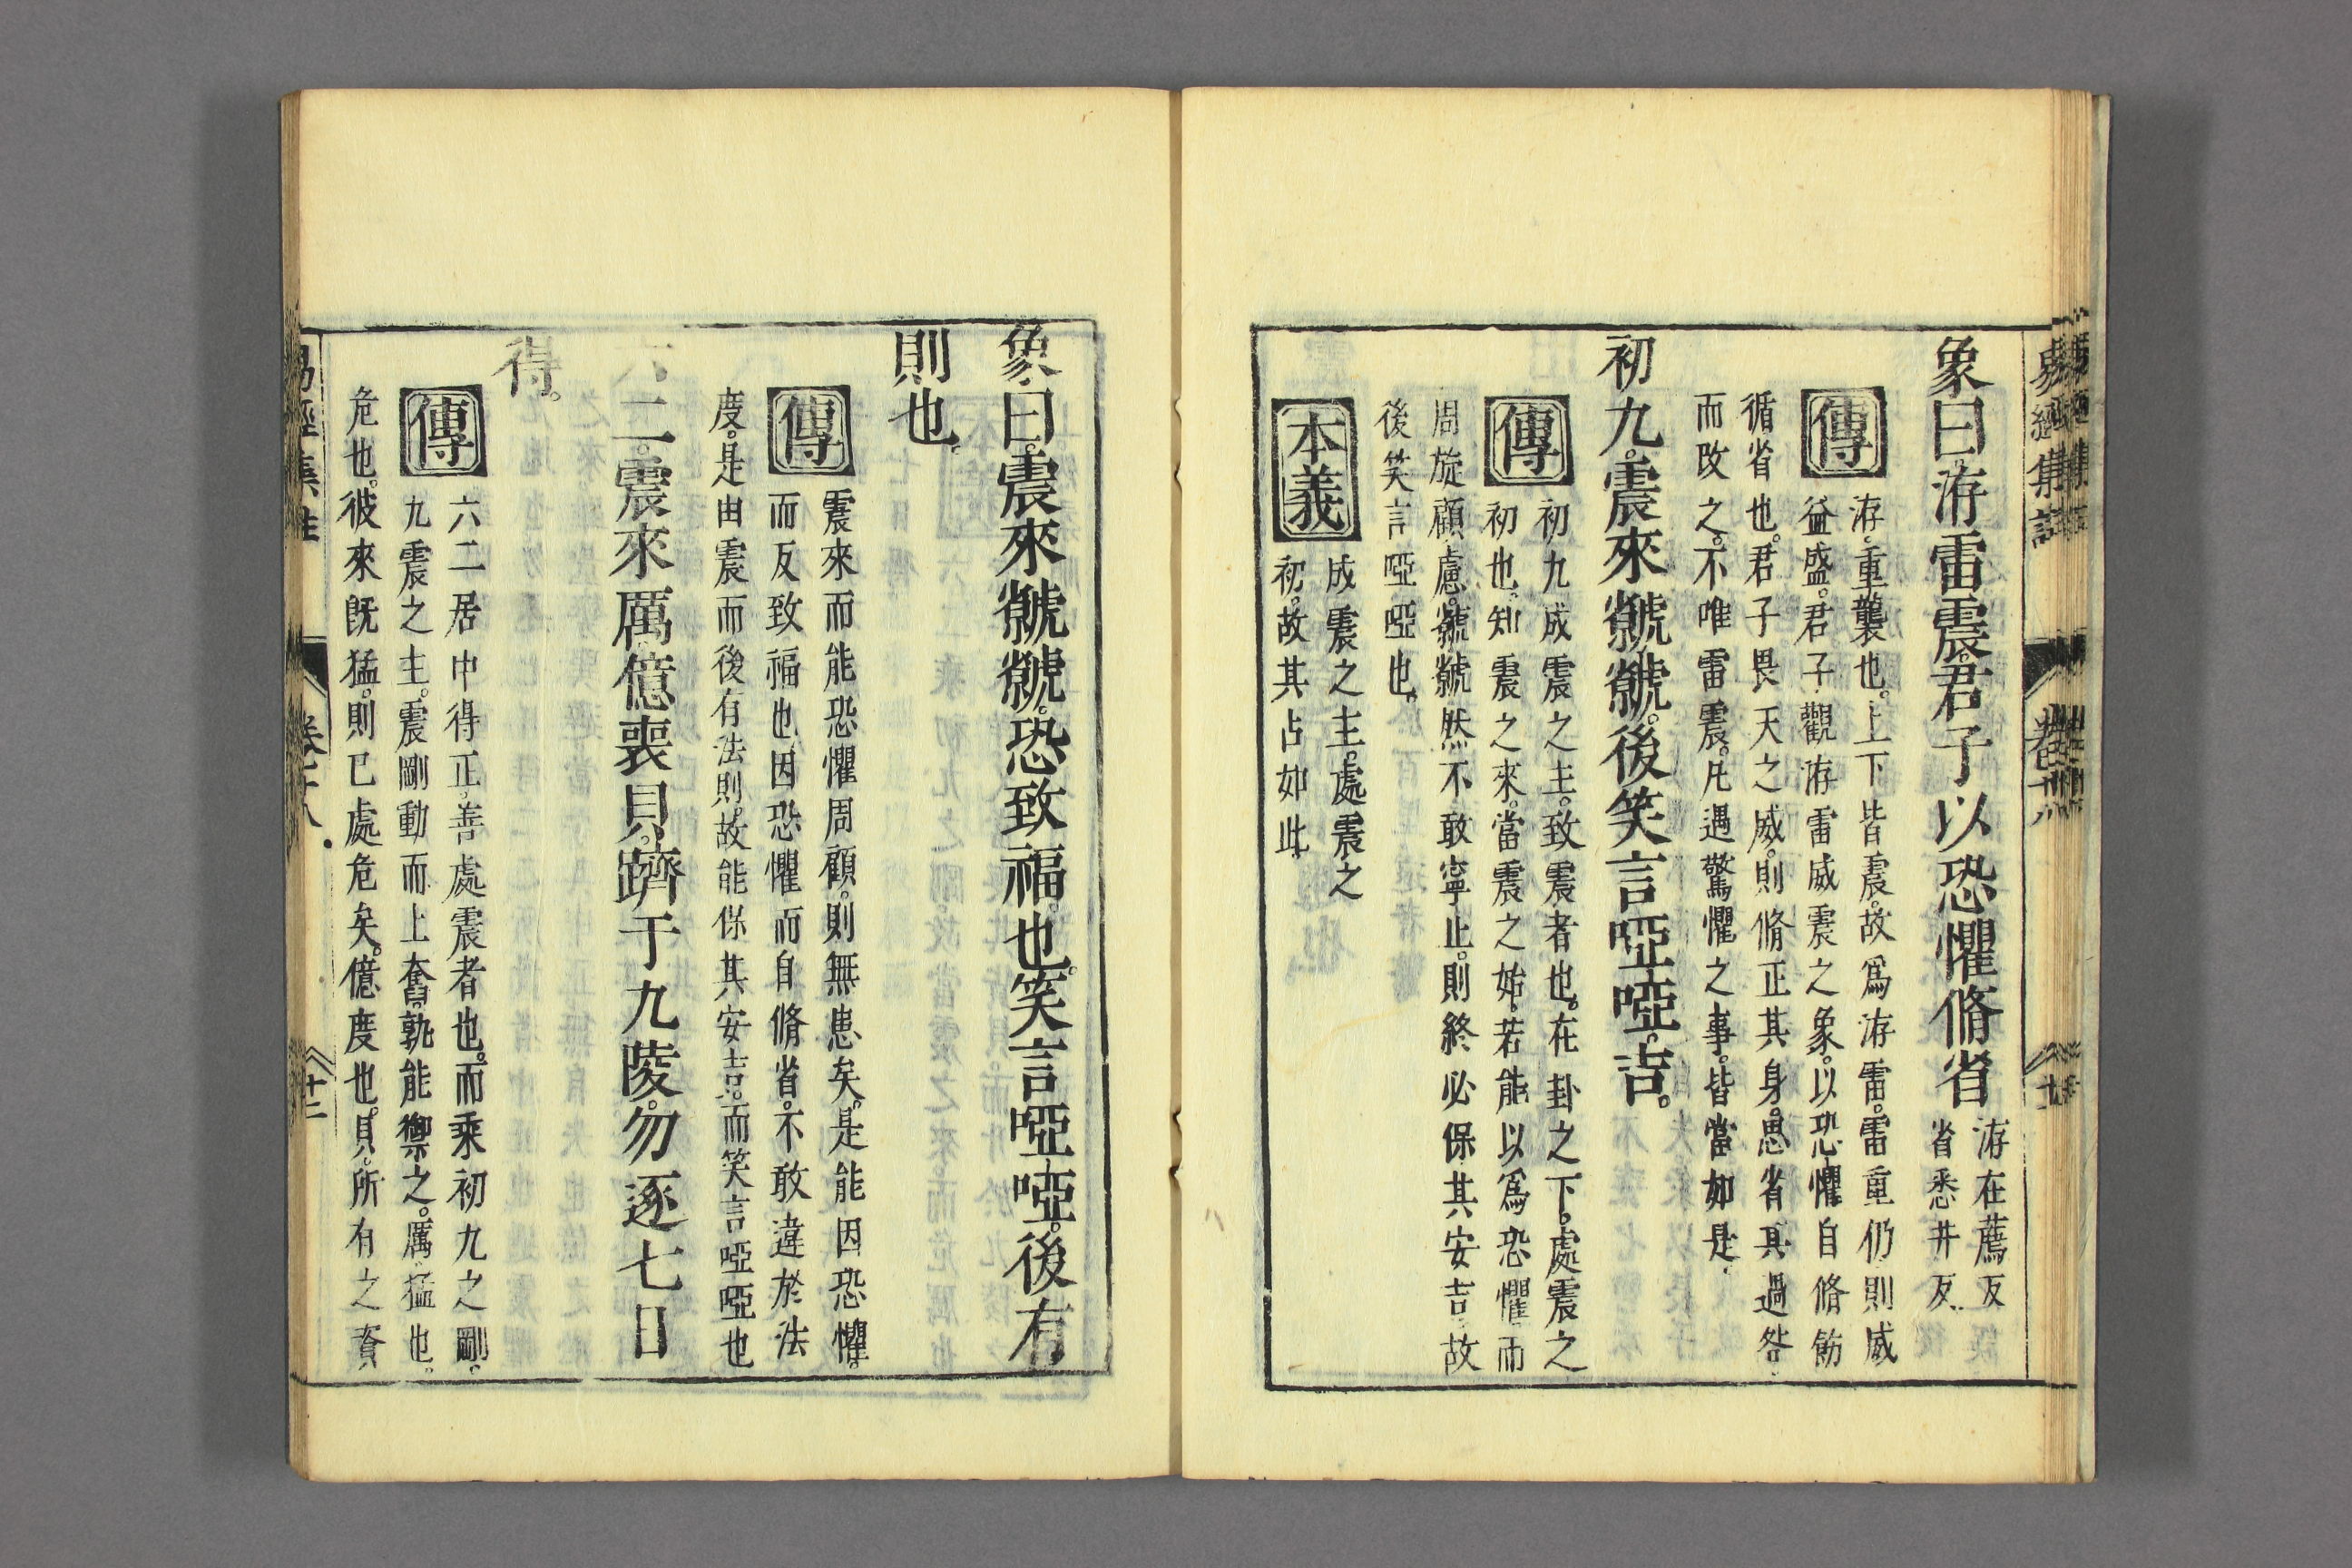 象曰。洊雷震。君子以恐懼脩省
洊在薦反
省悉井反
傳
洊。重襲也。上下皆震。故爲洊雷。雷重仍則威
益盛。君子觀洊雷威震之象。以恐懼自脩飭
循省也。君子畏天之威。則脩正其身。思省其過咎
而改之。不唯雷震。凡遇驚懼之事。皆當如是
初九。震來虩虩。後笑言啞啞。吉。
傳
初九成震之主。致震者也。在卦之下。處震之
初也。知震之來。當震之始。若能以爲恐懼而
周旋顧慮。虩虩然不敢寧止。則終必保其安吉。故
後笑言啞啞也。
本義
成震之主。處震之
初。故其占如此
象曰。震來虩虩。恐致福也。笑言啞啞。後有
則也。
傳
震來而能恐懼周顧。則無患矣。是能因恐懼。
而反致福也因恐懼而自脩省。不敢違於法
度。是由震而後有法則。故能保其安吉。而笑言啞啞也
六二。震來厲億喪貝。躋于九陵。勿逐七日
得。
傳
六二居中得正。善處震者也。而乘初九之剛。
九震之主。震剛動而上奮。孰能禦之。厲。猛也。
危也。彼來旣猛。則已處危矣。億。度也。貝。所有之資
易經集註
卷十八
十二